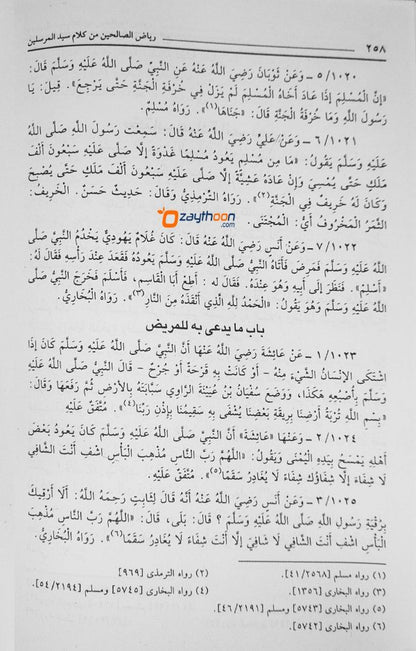 ٢٥٨ رياض الصالحين من كلام سيد المرسلين
٥/١٠٢٠ - وَعَنْ ثَوْبَانَ رَضِيَ اللَّهُ عَنْهُ عَنِ النَّبِيِّ صَلَّى اللَّهُ عَلَيْهِ وَسَلَّمَ قَالَ:
«إِنَّ الْمُسْلِمَ إِذَا عَادَ أَخَاهُ الْمُسْلِمَ لَمْ يَزَلْ فِي خُرْفَةِ الْجَنَّةِ حَتَّى يَرْجِعَ». قِيلَ: يَا
رَسُولَ اللَّهِ وَمَا خُرْفَةُ الْجَنَّةِ قَالَ: «جَنَاهَا»(١). رَوَاهُ مُسْلِمٌ.
٦/١٠٢١ - وَعَنْ عَلِيٍّ رَضِيَ اللَّهُ عَنْهُ قَالَ: سَمِعْتُ رَسُولَ اللَّهِ صَلَّى اللَّهُ
عَلَيْهِ وَسَلَّمَ يَقُولُ: «مَا مِنْ مُسْلِمٍ يَعُودُ مُسْلِمًا غُدْوَةً إِلَّا صَلَّى عَلَيْهِ سَبْعُونَ أَلْفَ
مَلَكٍ حَتَّى يُمْسِيَ وَإِنْ عَادَهُ عَشِيَّةً إِلَّا صَلَّى عَلَيْهِ سَبْعُونَ أَلْفَ مَلَكٍ حَتَّى يُصْبِحَ
وَكَانَ لَهُ خَرِيفٌ فِي الْجَنَّةِ»(٢). رَوَاهُ التِّرْمِذِيُّ وَقَالَ: حَدِيثٌ حَسَنٌ. الْخَرِيفُ:
الثَّمَرُ الْمَخْرُوفُ أَيْ: الْمُجْتَنَى.
Ozaythoon
.com
٧/١٠٢٢ - وَعَنْ أَنَسٍ رَضِيَ اللَّهُ عَنْهُ قَالَ: كَانَ غُلَامٌ يَهُودِيٌّ يَخْدُمُ النَّبِيَّ صَلَّى
اللَّهُ عَلَيْهِ وَسَلَّمَ فَمَرِضَ فَأَتَاهُ النَّبِيُّ صَلَّى اللَّهُ عَلَيْهِ وَسَلَّمَ يَعُودُهُ فَقَعَدَ عِنْدَ رَأْسِهِ فَقَالَ لَهُ:
«أَسْلِمْ». فَنَظَرَ إِلَى أَبِيهِ وَهُوَ عِنْدَهُ. فَقَالَ لَهُ : أَطِعْ أَبَا الْقَاسِمِ، فَأَسْلَمَ فَخَرَجَ النَّبِيُّ صَلَّى
اللَّهُ عَلَيْهِ وَسَلَّمَ وَهُوَ يَقُولُ: «الْحَمْدُ لِلَّهِ الَّذِي أَنْقَذَهُ مِنَ النَّارِ»(٣). رَوَاهُ الْبُخَارِيُّ.
باب ما يدعى به للمريض
١/١٠٢٣ - عَنْ عَائِشَةَ رَضِيَ اللَّهُ عَنْهَا أَنَّ النَّبِيَّ صَلَّى اللَّهُ عَلَيْهِ وَسَلَّمَ كَانَ إِذَا
اشْتَكَى الْإِنْسَانُ الشَّيْءَ مِنْهُ - أَوْ كَانَتْ بِهِ قَرْحَةٌ أَوْ جُرْحٌ - قَالَ النَّبِيُّ صَلَّى اللَّهُ عَلَيْهِ
وَسَلَّمَ بِأَصْبُعِهِ هَكَذَا، وَوَضَعَ سُفْيَانُ بْنُ عُيَيْنَةَ الرَّاوِي سَبَّابَتَهُ بِالْأَرْضِ ثُمَّ رَفَعَهَا وَقَالَ:
«بِسْمِ اللَّهِ تُرْبَةُ أَرْضِنَا بِرِيقَةِ بَعْضِنَا يُشْفَى بِهِ سَقِيمُنَا بِإِذْنِ رَبِّنَا»(٤). مُتَّفَقٌ عَلَيْهِ
٢/١٠٢٤ - وَعَنْهَا «عَائِشَةَ» أَنَّ النَّبِيَّ صَلَّى اللَّهُ عَلَيْهِ وَسَلَّمَ كَانَ يَعُودُ بَعْضَ
أَهْلِهِ يَمْسَحُ بِيَدِهِ الْيُمْنَى وَيَقُولُ: «اللَّهُمَّ رَبَّ النَّاسِ مُذْهِبَ الْبَأْسِ اشْفِ أَنْتَ الشَّافِي
لَا شِفَاءَ إِلَّا شِفَاؤُكَ شِفَاءً لَا يُغَادِرُ سَقَمًا»(٥). مُتَّفَقٌ عَلَيْهِ.
٣/١٠٢٥ - وَعَنْ أَنَسٍ رَضِيَ اللَّهُ عَنْهُ أَنَّهُ قَالَ لِثَابِتٍ رَحِمَهُ اللَّهُ: أَلَا أَرْقِيكَ
بِرُقْيَةِ رَسُولِ اللَّهِ صَلَّى اللَّهُ عَلَيْهِ وَسَلَّمَ ؟ قَالَ: بَلَى، قَالَ: «اللَّهُمَّ رَبَّ النَّاسِ مُذْهِبَ
الْبَأْسِ اشْفِ أَنْتَ الشَّافِي لَا شَافِيَ إِلَّا أَنْتَ شِفَاءً لَا يُغَادِرُ سَقَمًا»(٦). رَوَاهُ الْبُخَارِيُّ.
(١) رواه مسلم [٤١/٢٥٦٨]. (٢) رواه الترمذى [٩٦٩]
(٣) رواه البخارى [١٣٥٦]. (٤) رواه البخارى [٥٧٤٥] ومسلم [٥٤/٢١٩٤].
(٥) رواه البخارى [٥٧٤٣] ومسلم [٤٦/٢١٩١].
(٦) رواه البخارى [٥٧٤٢].